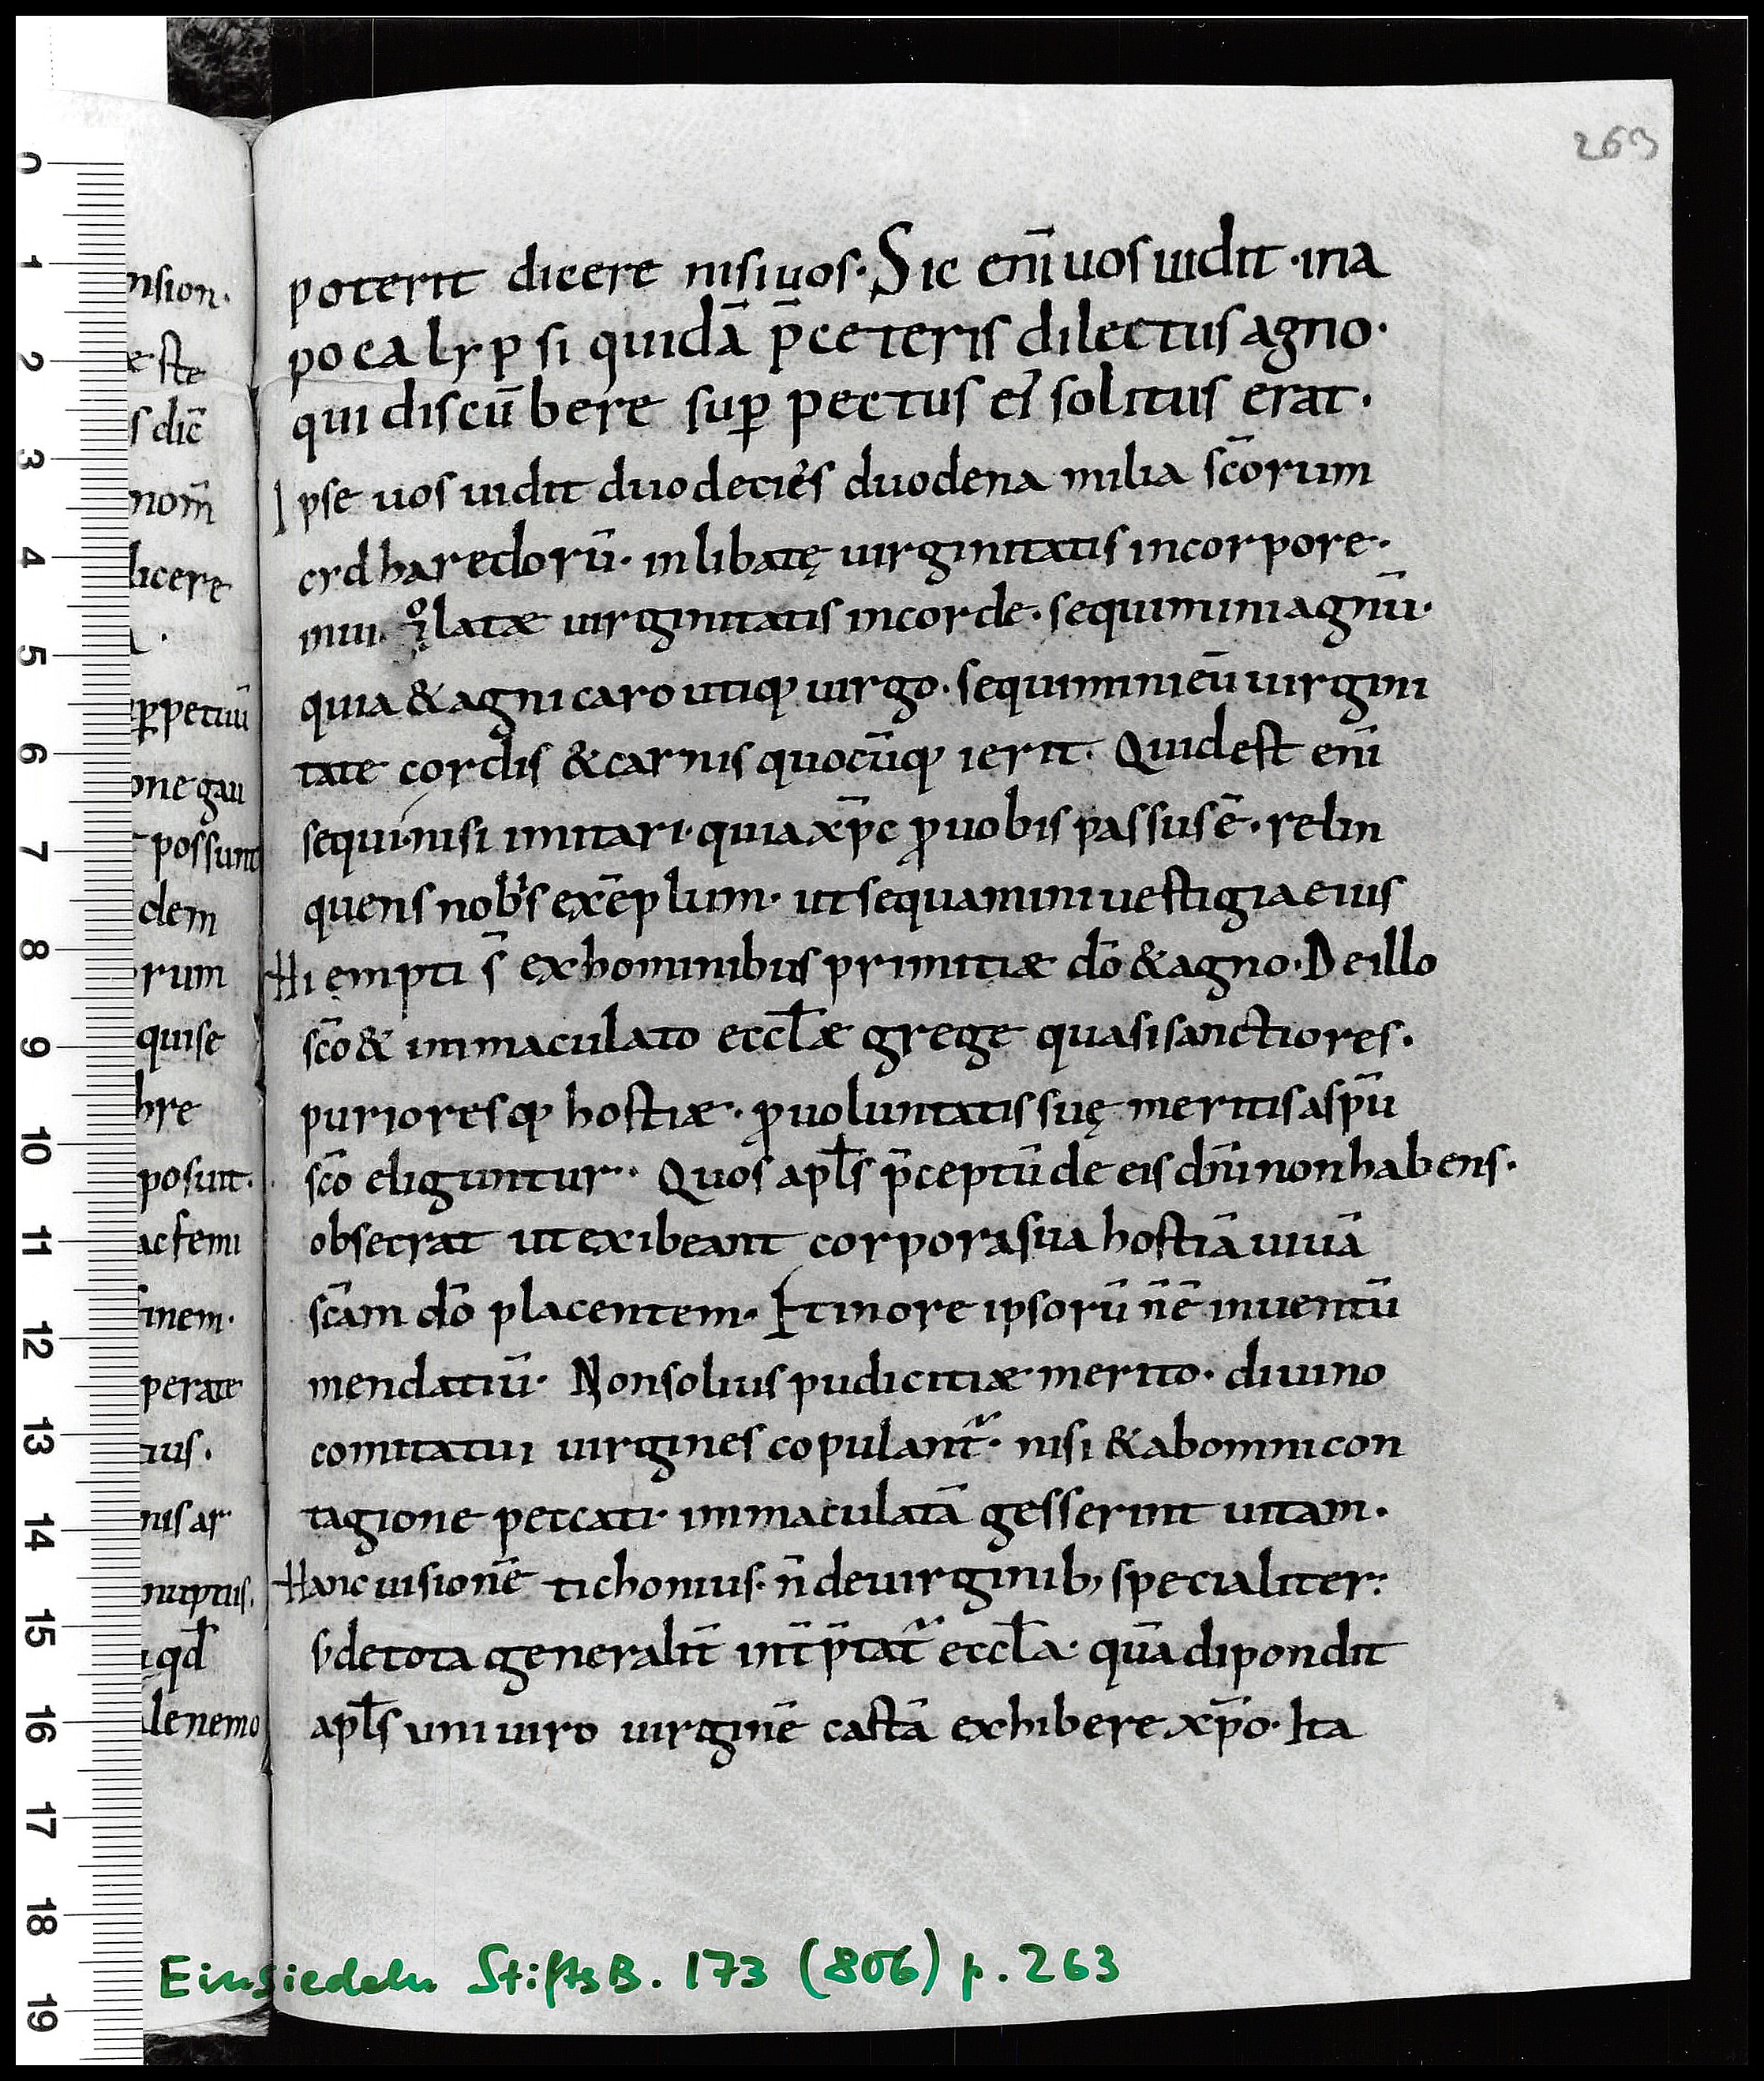 263
poterit dicere nisi uos· Sic eni̅ uos uidit · in a
pocalypsi quida̅ p̅ceteris dilectus agno·
qui discu̅bere sup̱ pectus ei᾽ solitus erat·
Ipse uos uidit duodecies duodena milia sc̅orum
cydharedoru̅· inlibatę uirginitatis in corpore·
latæ uirginitatis in corde· sequimini agnu̅·
quia & agni caro utiq; uirgo· sequimini eu̅ uirgini
tate cordis & carnis quocu̅q; ierit· Quid est eni̅
sequi· nisi imitari· quia xp̅c ꝓ uobis passus e̅· relin
quens nobis exe̅plum· ut sequamini uestigia eius
Hi empti s̅ ex hominibus primitiæ do̅ & agno· De illo
sc̅o & immaculato eccl̅æ grege quasi sanctiores·
purioresq; hostiæ· ꝓ uoluntatis suę meritis a sp̅u
sc̅o eliguntur· Quos apl̅s p̅ceptu̅ de eis dn̅i non habens·
obsecrat ut exibeant corpora sua hostia̅ uiua̅
sc̅am do̅ placentem· Et in ore ipsoru̅ n̅ e̅ inuentu̅
mendatiu̅· Non solius pudicitiæ merito· diuino
comitatui uirgines copulant᷑· nisi & ab omni con
tagione peccati· immaculata̅ gesserint uitam·
Hanc uisione̅ tichonius· n̅ de uirginib; specialiter:
s; de tota generalit̅ int̅p̅tat᷑ eccl̅a· qua̅ dipondit
apl̅s uni uiro uirgine̅ casta̅ exhibere xp̅o· Ita
nsion·
æ ste
s dic̅
nom̅
dicere
a·
ꝑpetuu̅
one gau
possunt
dem
rum
quise
bre
posuit·
ac femi
finem·
perate
tius·
nis ar
nuptus·
qd̅
le nemo
0
1
2
3
4
5
6
7
8
9
10
11
12
13
14
15
16
17
18
19
Einsiedeln StiftsB. 173 (806) p. 263